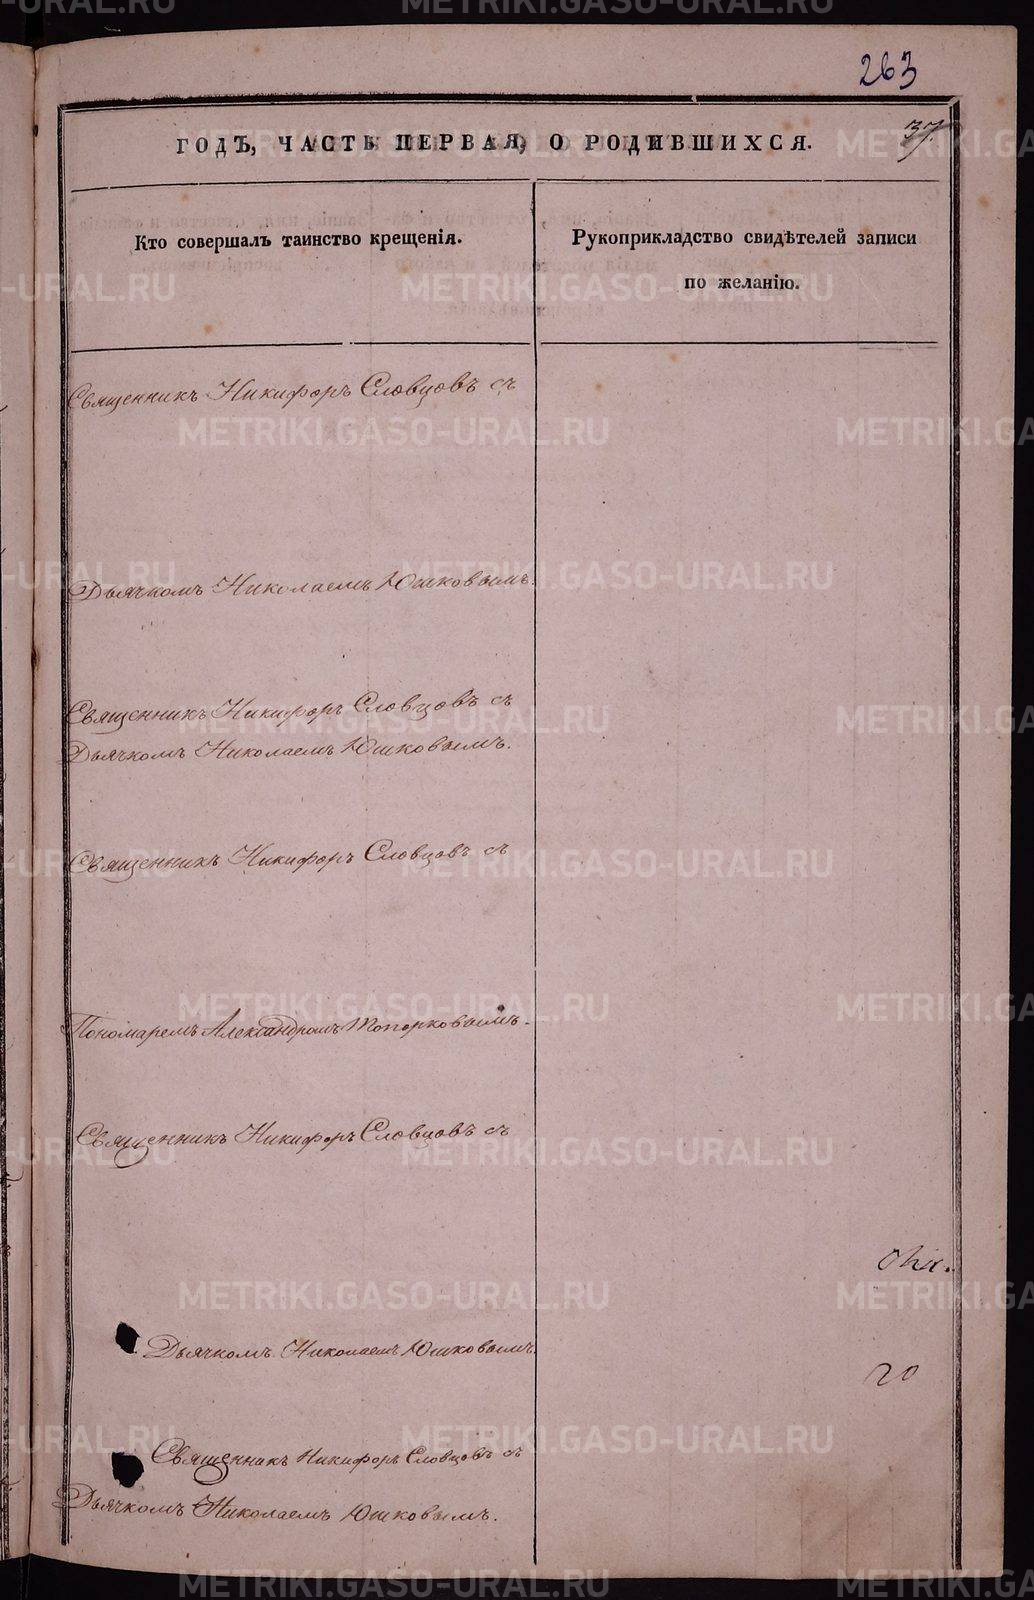 263
37.
ГОДЪ, ЧАСТЬ ПЕРВАЯ, О РОДИВШИХСЯ.
Кто совершалъ таинство крещенія.
Рукоприкладство свидѣтелей записи
по желанію.
Священникъ Никифоръ Словцовъ съ
Дьячкомъ Николаемъ Юшковымъ.
Священникъ Никифоръ Словцовъ съ
Дьячкомъ Николаемъ Юшковымъ.
Священникъ Никифоръ Словцовъ съ
Пономаремъ Александромъ Топорковымъ.
Священникъ Никифоръ Словцовъ съ
Дьячкомъ Николаемъ Юшковымъ.
20
Священникъ Никифоръ Словцовъ съ
Дьячкомъ Николаемъ Юшковымъ.
METRIKI.GASO-URAL.RU